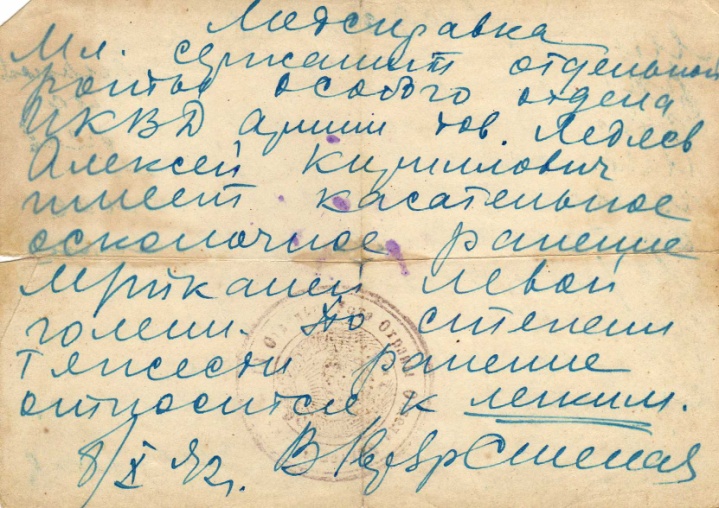 Медсправка
Мл. сержант отдельной
роты особого отдела
НКВД армии тов. Ледяев
Алексей Кириллович
имеет касательное
осколочное ранение
м/тканей левой
голени. По степени
тяжести ранение
относится к легким.
8/X 42 г.